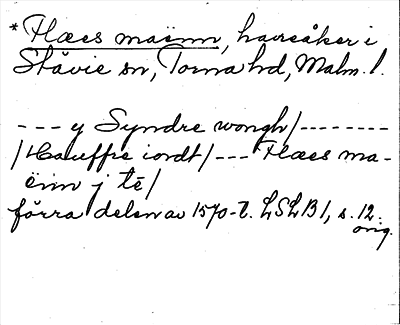 *Flæes maënn, havreåker i
Stävie sn, Torna hd, Malm. l.
--- y Syndre wongh/--------
/Hauffre iordt/--- Flæes ma-
ënn j tē/
förra delen av 1570-t. LSLB 1, s. 12.
orig.